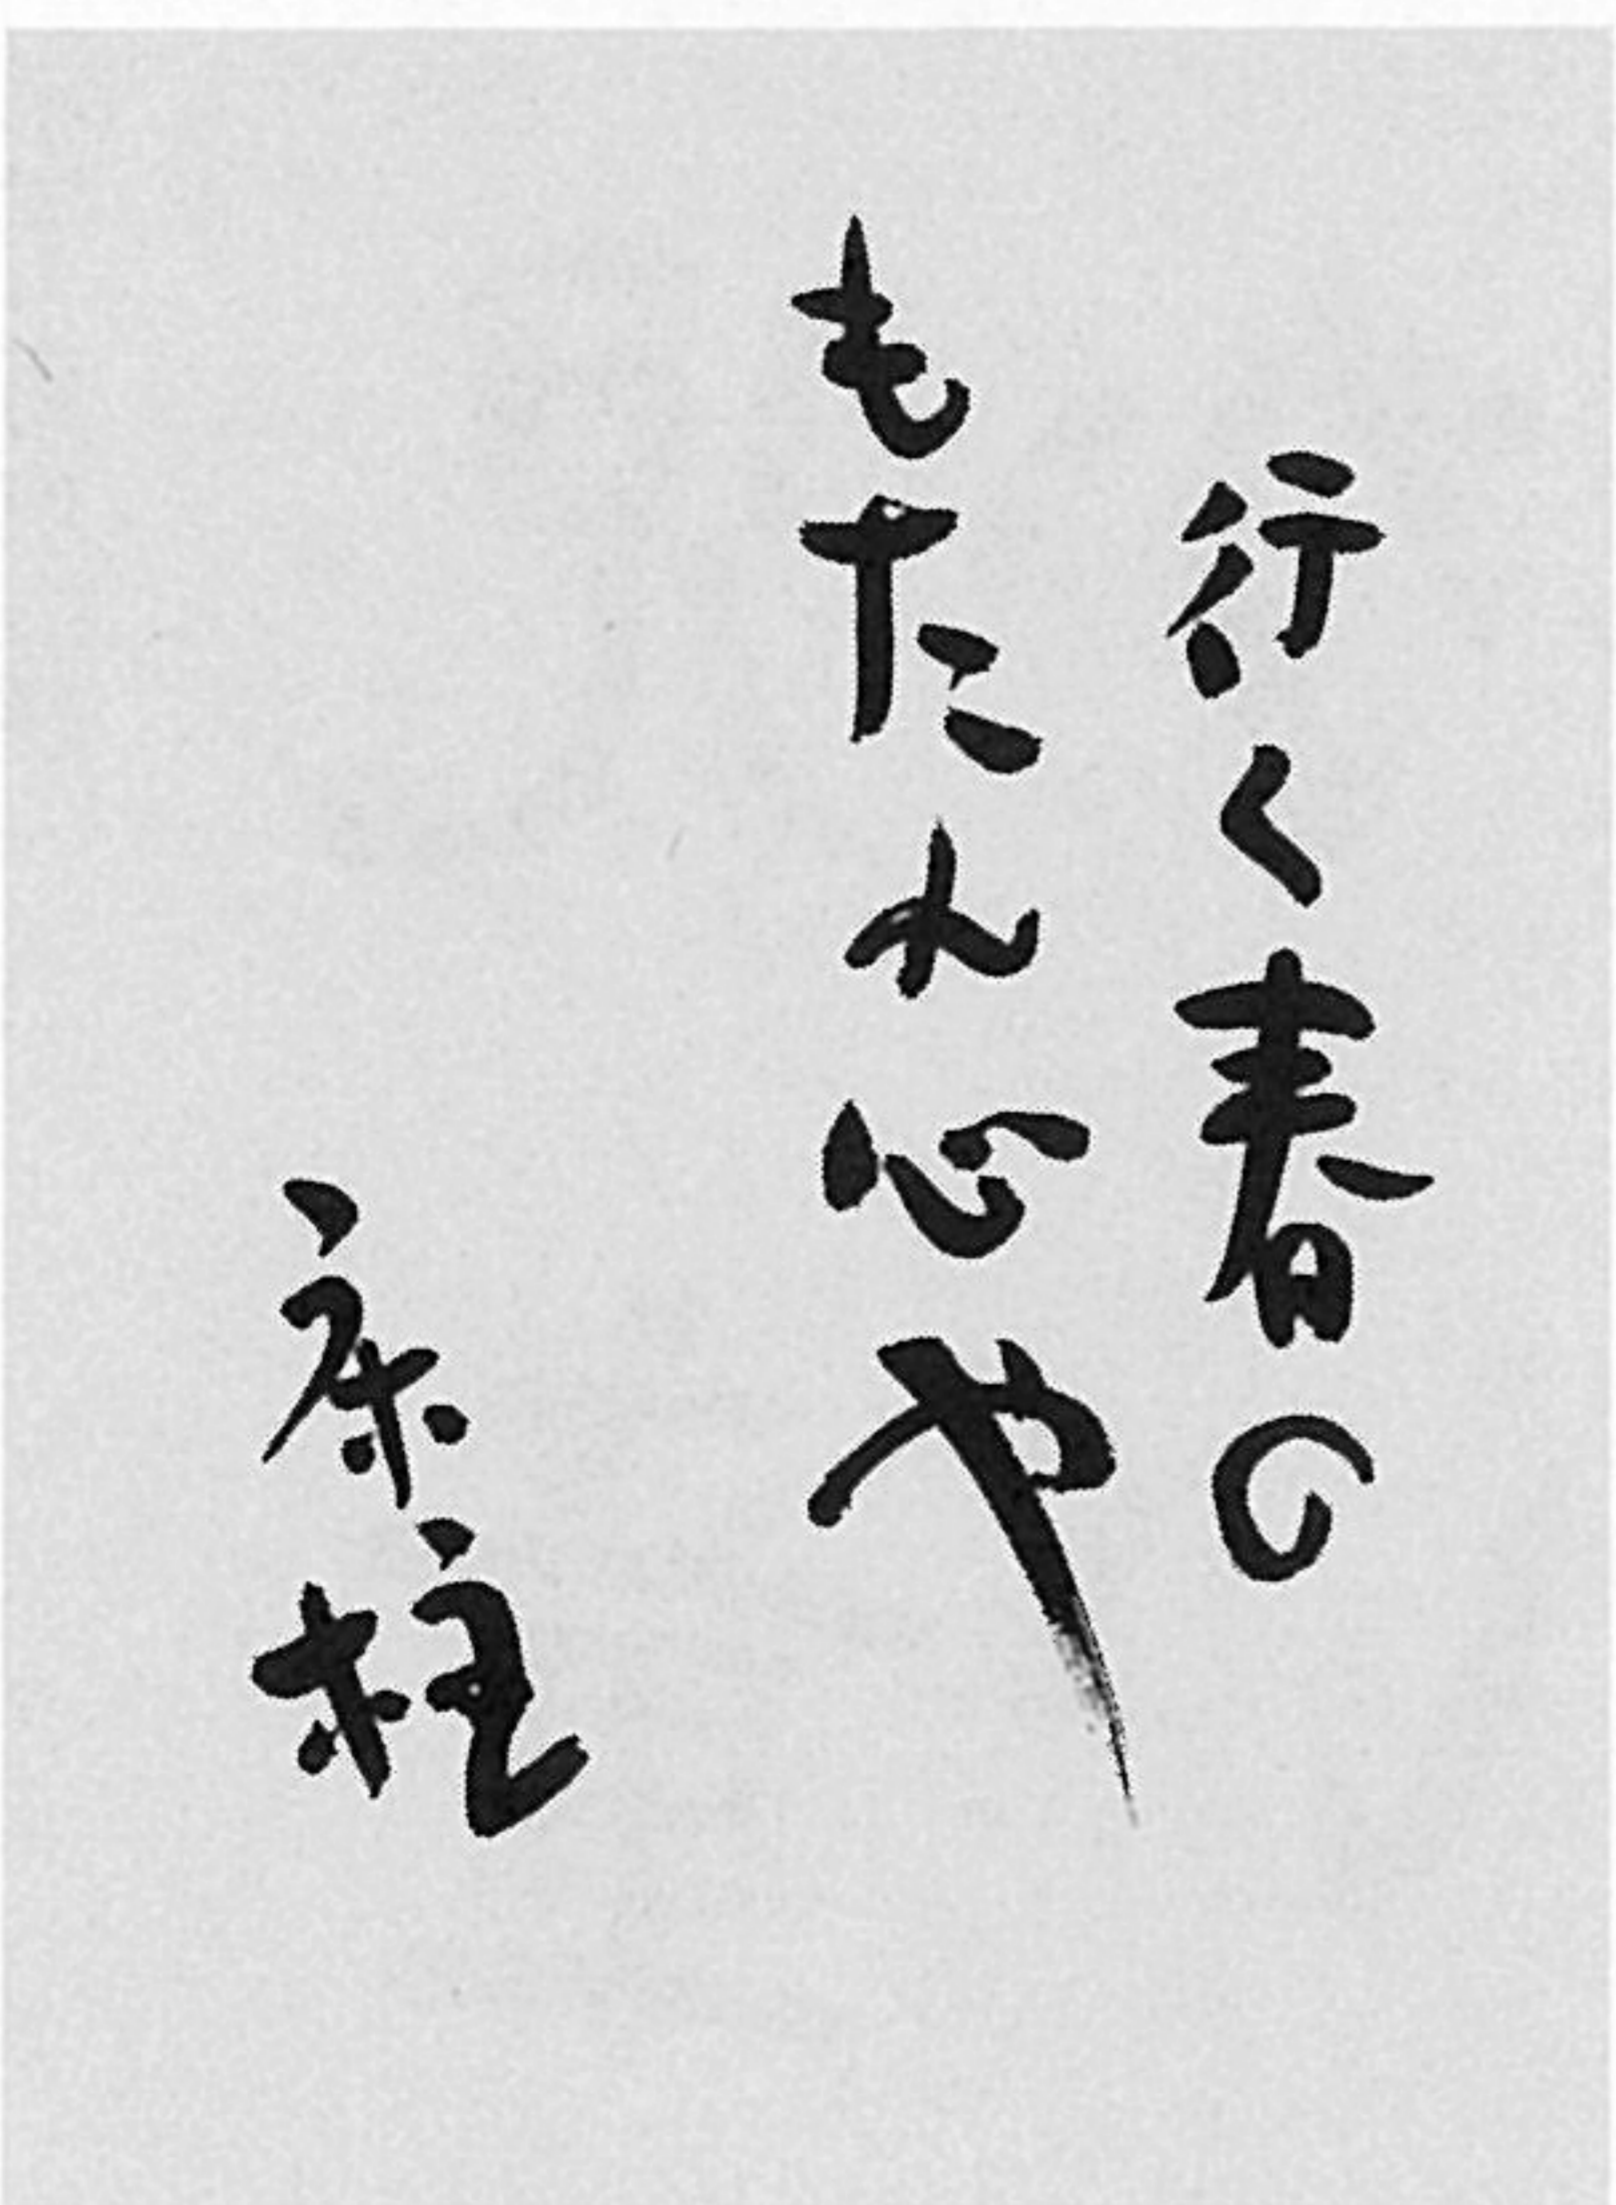 行く春の
もたれ心や
床柱